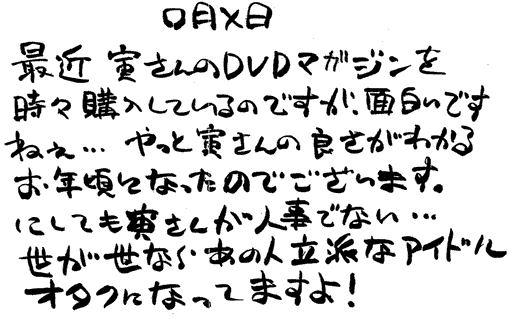 〇月×日
最近 寅さんのDVDマガジンを
時々購入しているのですが、面白いです
ねぇ… やっと寅さんの良さがわかる
お年頃になったのでございます。
にしても寅さんが人事でない…
世が世ならあの人立派なアイドル
オタクになってますよ!